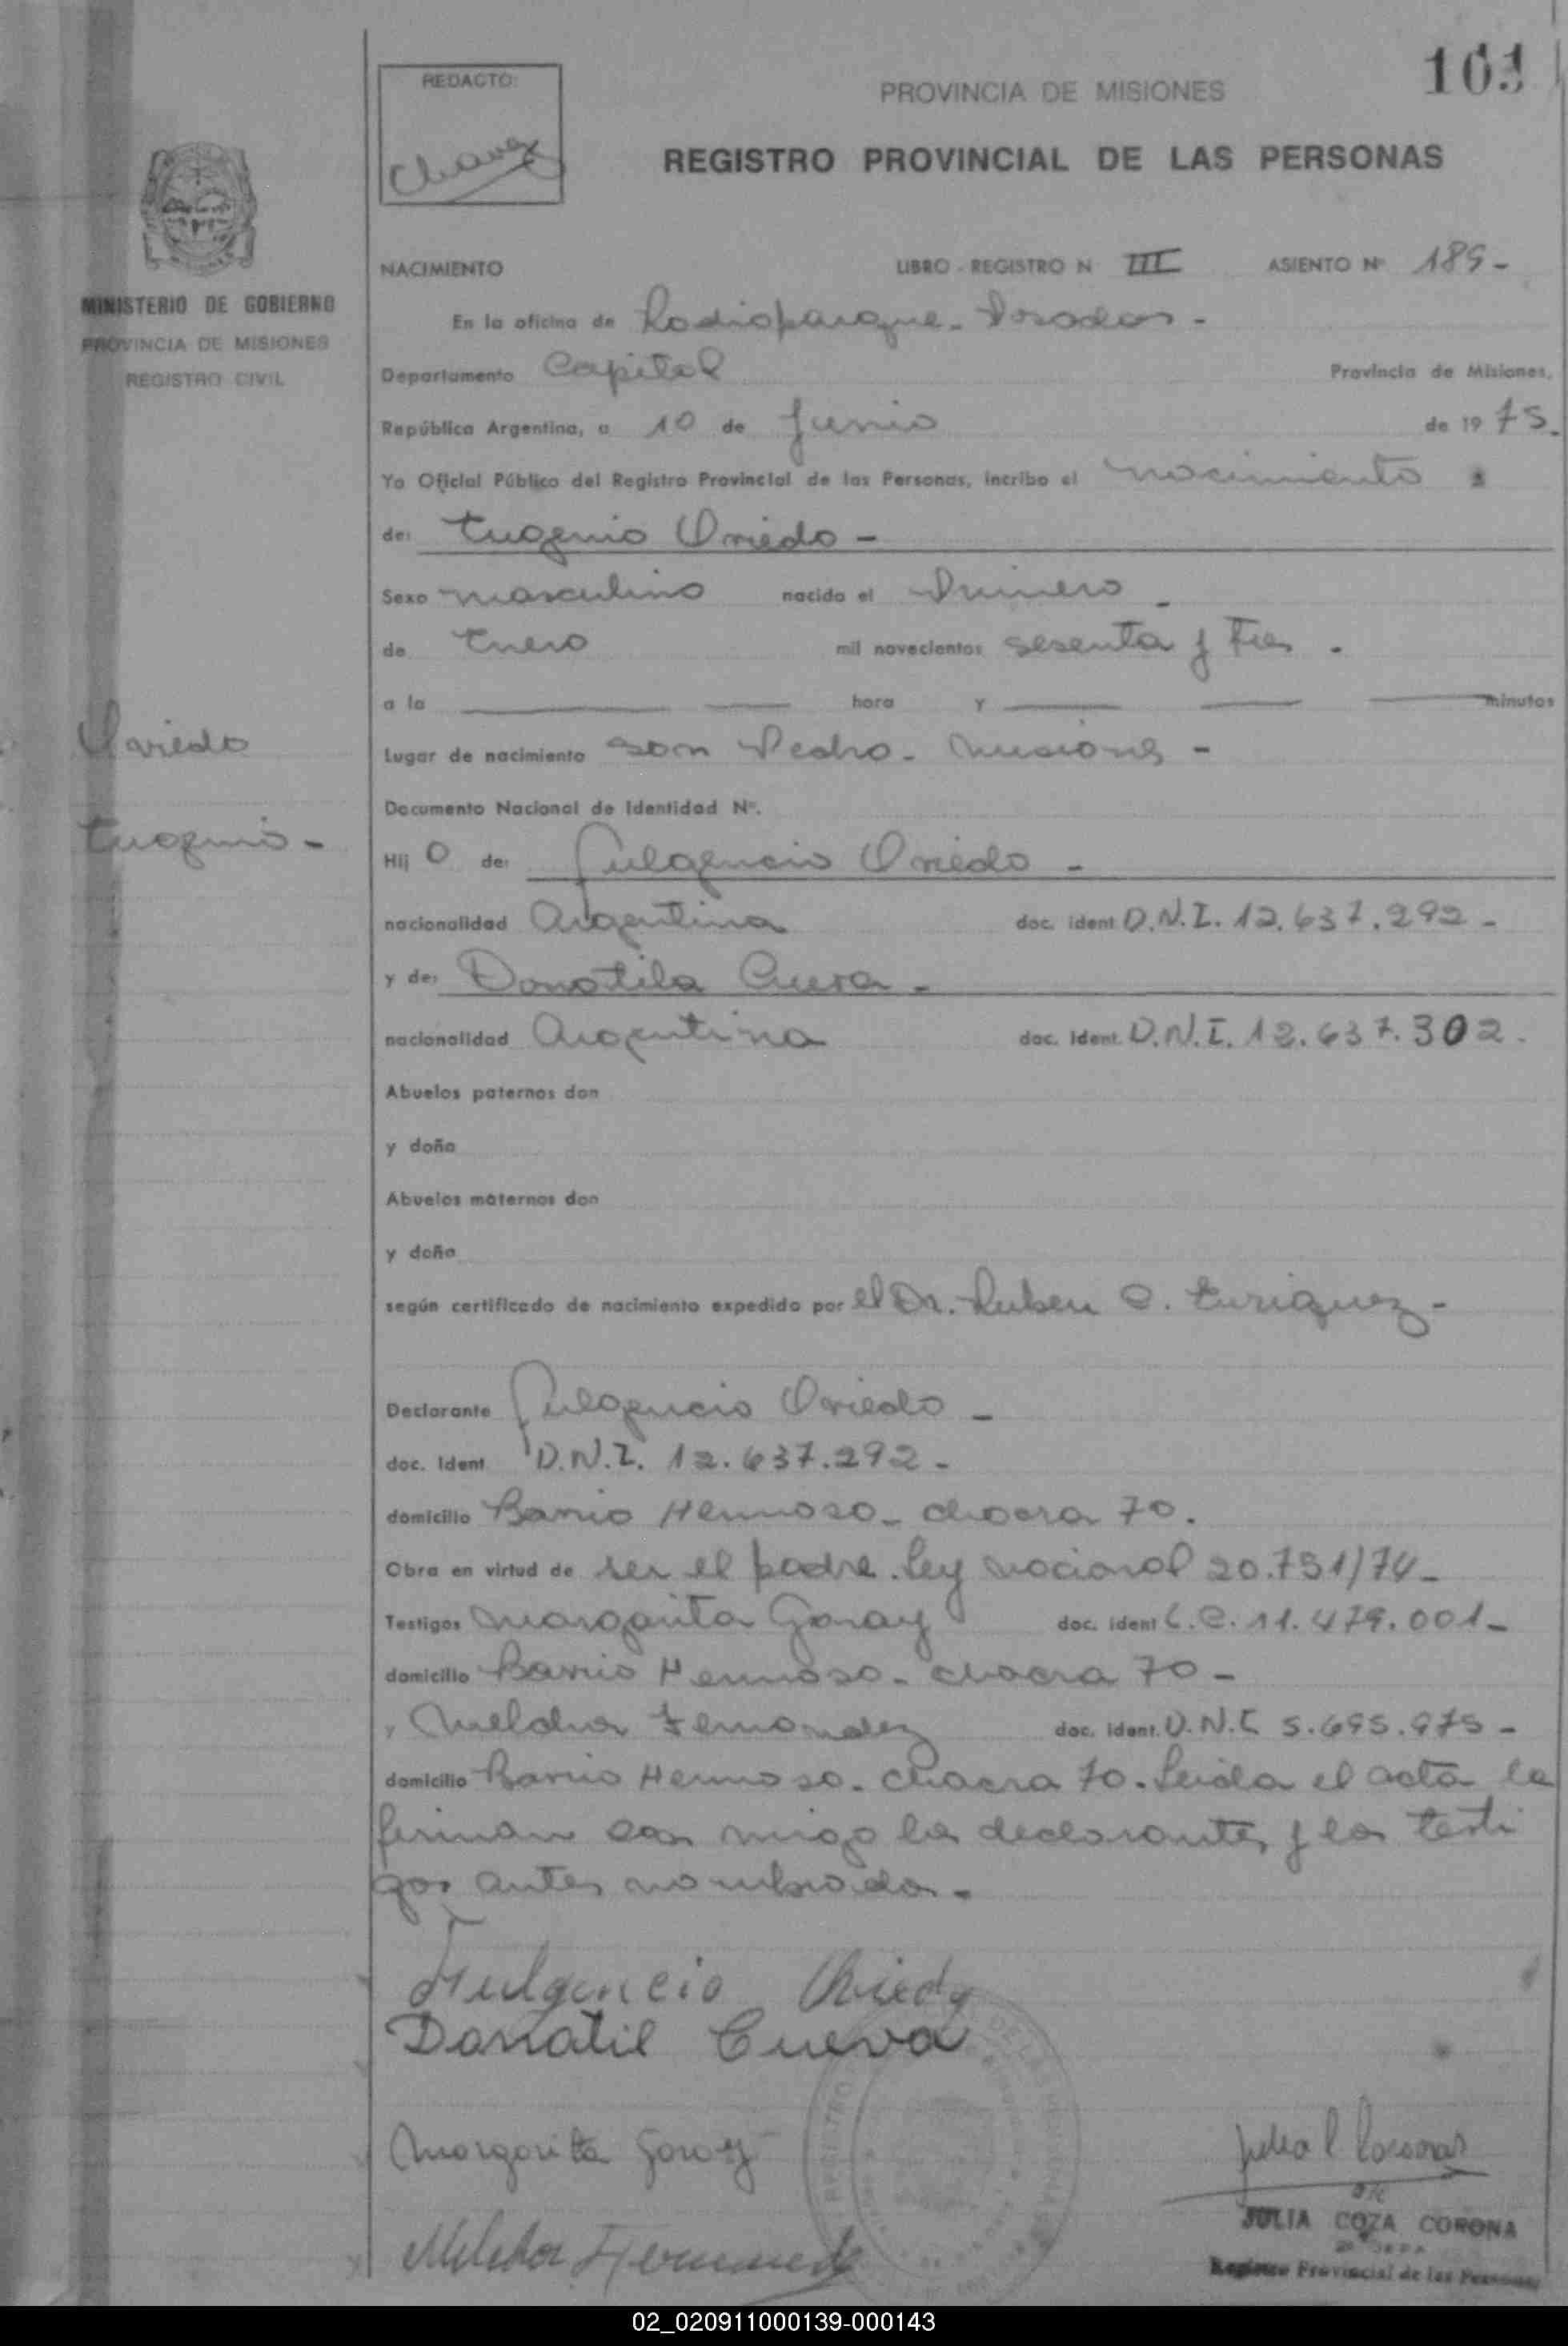 103
REDACTO:
Chavez
PROVINCIA DE MISIONES
REGISTRO PROVINCIAL DE LAS PERSONAS
MINISTERIO DE GOBIERNO
PROVINCIA DE MISIONES
REGISTRO CIVIL
NACIMIENTO LIBRO - REGISTRO N III ASIENTO Nº 189 -
En la oficina de Radioparque - Posadas -
Departamento Capital Provincia de Misiones,
República Argentina, a 10 de Junio de 1975.
Yo Oficial Público del Registro Provincial de las Personas, incribo el nacimiento
de: Eugenio Oviedo -
Sexo masculino nacido el Primero -
de Enero mil novecientos sesenta y tres .
a la hora y minutos
Oviedo
Lugar de nacimiento San Pedro - Misiones -
Documento Nacional de Identidad Nº.
Eugenio -
Hij o de: Fulgencio Oviedo -
nacionalidad Argentina doc. ident D.N.I. 12.637.292 -
y de: Donatila Cueva -
nacionalidad Argentina doc. ident. D.N.I. 12.637.302 .
Abuelos paternos don
y doña
Abuelos maternos don
y doña
según certificado de nacimiento expedido por el Dr. Ruben C. Enriquez -
Declarante Fulgencio Oviedo -
doc. ident D.N.I. 12.637.292 -
domicilio Barrio Hermoso - chacra 70.
Obra en virtud de ser el padre. Ley nacional 20.751/74 -
Testigos Margarita Garay doc. ident L.C. 11.479.001 -
domicilio Barrio Hermoso - chacra 70 -
y Melchor Fernandez doc. ident. D.N.I. 5.695.975 -
domicilio Barrio Hermoso - chacra 70. Leida el acta la
firman con migo los declarantes y los testi
gos antes nombrados -
Fulgencio Oviedo
Donatil Cueva
Margarita Garay
Melchor Fernandez
JULIA COZA CORONA
Registro Provincial de las Personas
02_020911000139-000143